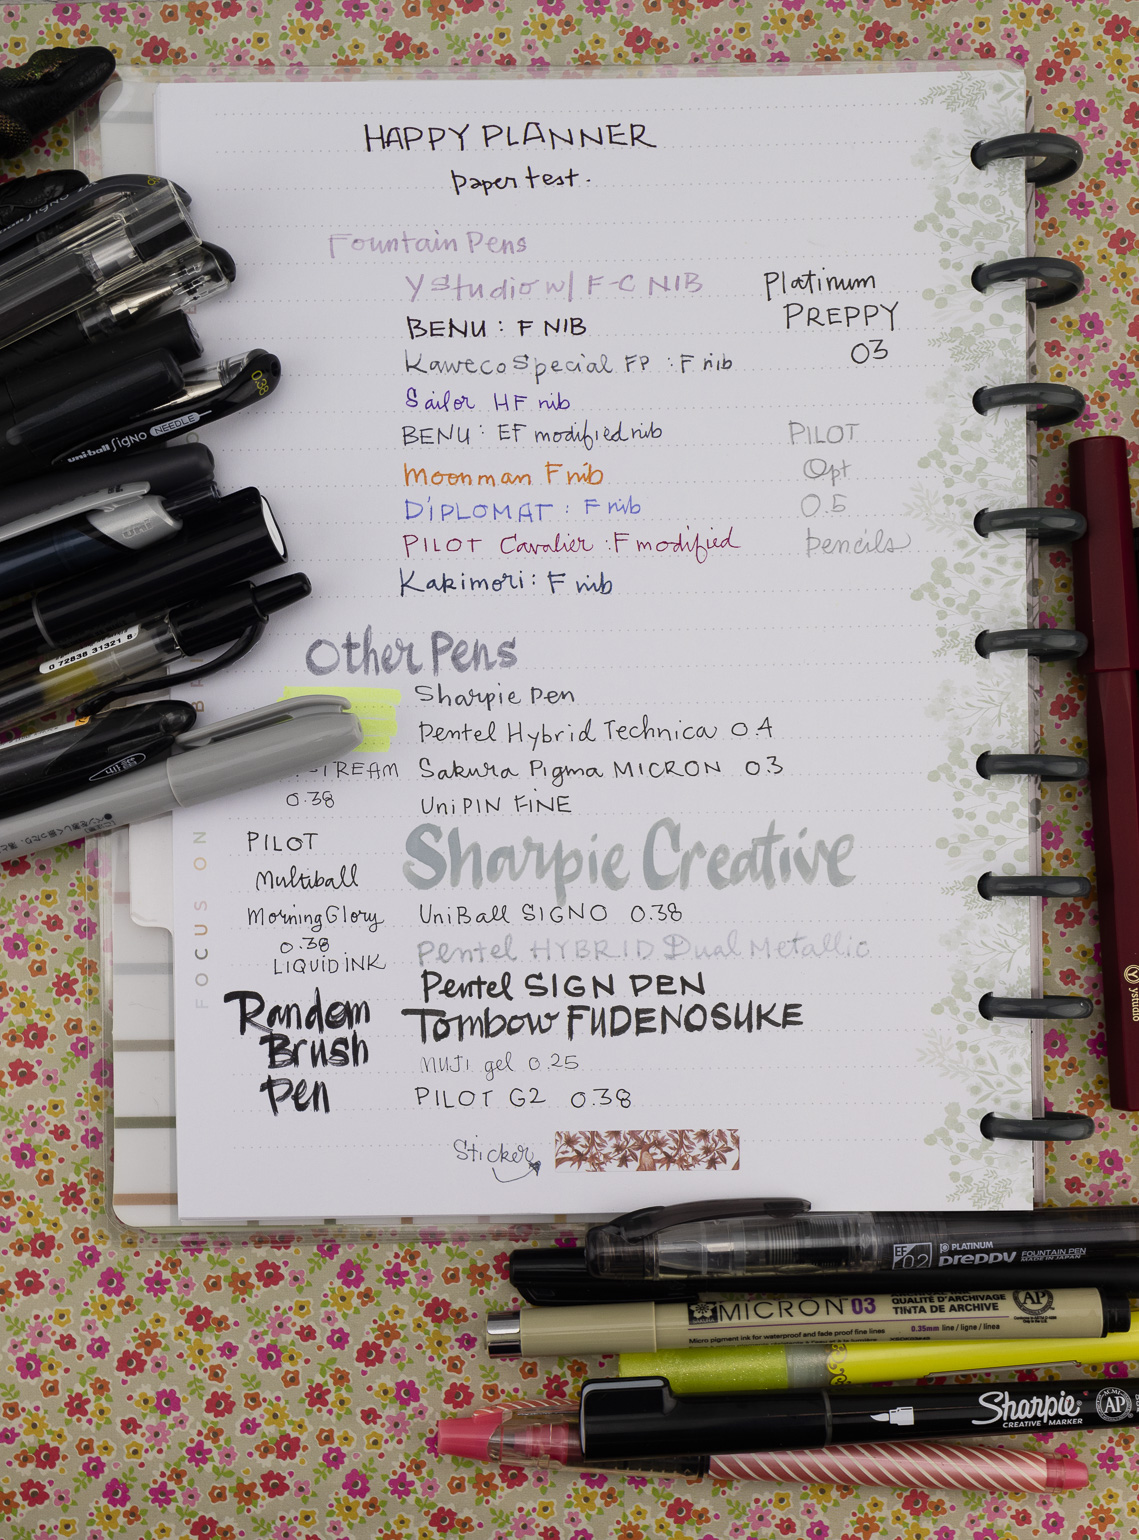 HAPPY PLANNER
paper test.
Fountain Pens
YStudio w/ F-C NIB
BENU : F NIB
Kaweco Special FP : F nib
Sailor HF nib
BENU : EF modified nib
Moonman F nib
DiPLOMAT : F nib
PILOT Cavalier : F modified
Kakimori : F nib
Platinum
PREPPY
03
PILOT
Opt
0.5
pencils
Other Pens
Sharpie Pen
Pentel Hybrid Technica 0.4
Sakura Pigma MICRON 0.3
Uni PIN FiNE
Sharpie Creative
UniBall SIGNO 0.38
Pentel HYBRID Dual Metallic
Pentel SIGN PEN
Tombow FUDENOSUKE
MUJI gel 0.25
PILOT G2 0.38
STREAM
0.38
PILOT
Multiball
Morning Glory
0.38
LIQUID iNK
Random
Brush
Pen
Sticker
FOCUS ON
0.38
uni-ball Signo NEEDLE
0 72838 31321 8
ystudio
EF 02 PLATINUM preppy FOUNTAIN PEN
MADE IN JAPAN
SAKURA MICRON 03
QUALITÉ D'ARCHIVAGE
TINTA DE ARCHIVE
AP
0.35mm line / ligne / lines
Micro pigment ink for waterproof and fade proof fine lines
Sharpie
CREATIVE MARKER
ACMI
AP